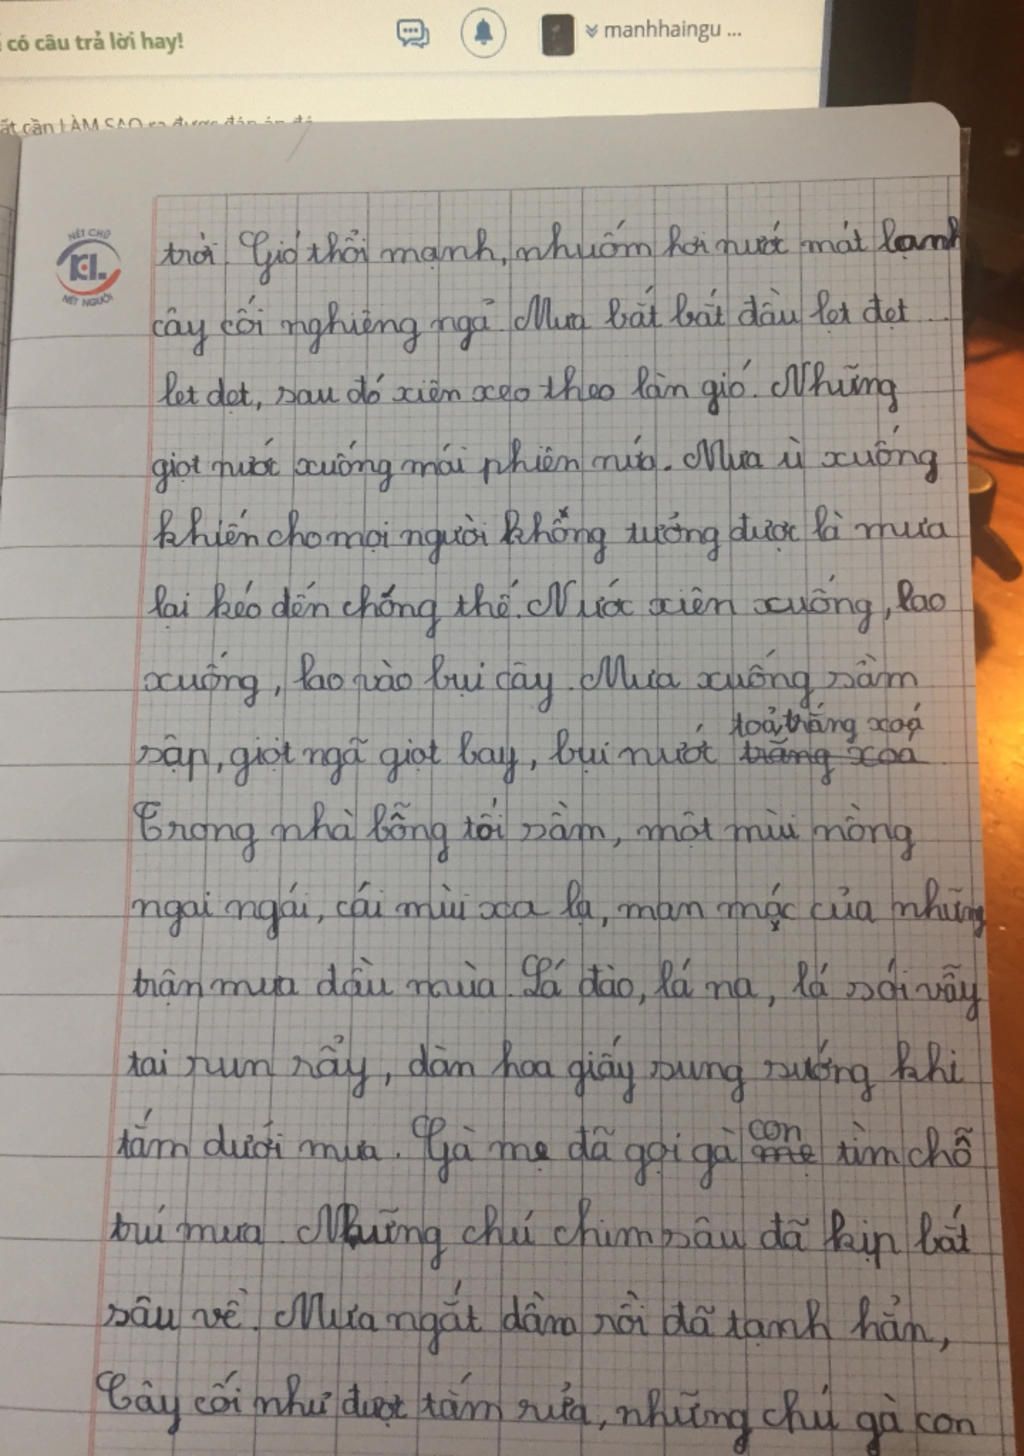 có câu trả lời hay!
manhhaingu ...
ất cần LÀM SAO ra được đáp án đó
NÉT CHỮ
KL
NẾT NGƯỜI
trời. Gió thổi mạnh, nhuốm hơi nước mát lạnh
cây cối nghiêng ngả. Mưa bắt bắt đầu lẹt đẹt ...
lẹt đẹt, sau đó xiên xẹo theo làn gió. Những
giọt nước xuống mái phiên nứa. Mưa ù xuống
khiến cho mọi người không tưởng được là mưa
lại kéo đến chóng thế. Nước xiên xuống, lao
xuống, lao vào bụi cây. Mưa xuống sầm
toả trắng xoá
sập, giọt ngã giọt bay, bụi nước trắng xoa
Trong nhà bỗng tối sầm, một mùi nồng
ngai ngái, cái mùi xa lạ, man mác của những
trận mưa đầu mùa. Lá đào, lá na, lá sói vẫy
tai run rẩy, dàn hoa giấy sung sướng khi
con
tắm dưới mưa. Gà mẹ đã gọi gà mẹ tìm chỗ
trú mưa. Những chú chim sâu đã kịp bắt
sâu về. Mưa ngắt dần rồi đã tạnh hẳn,
Cây cối như được tắm rửa, những chú gà con